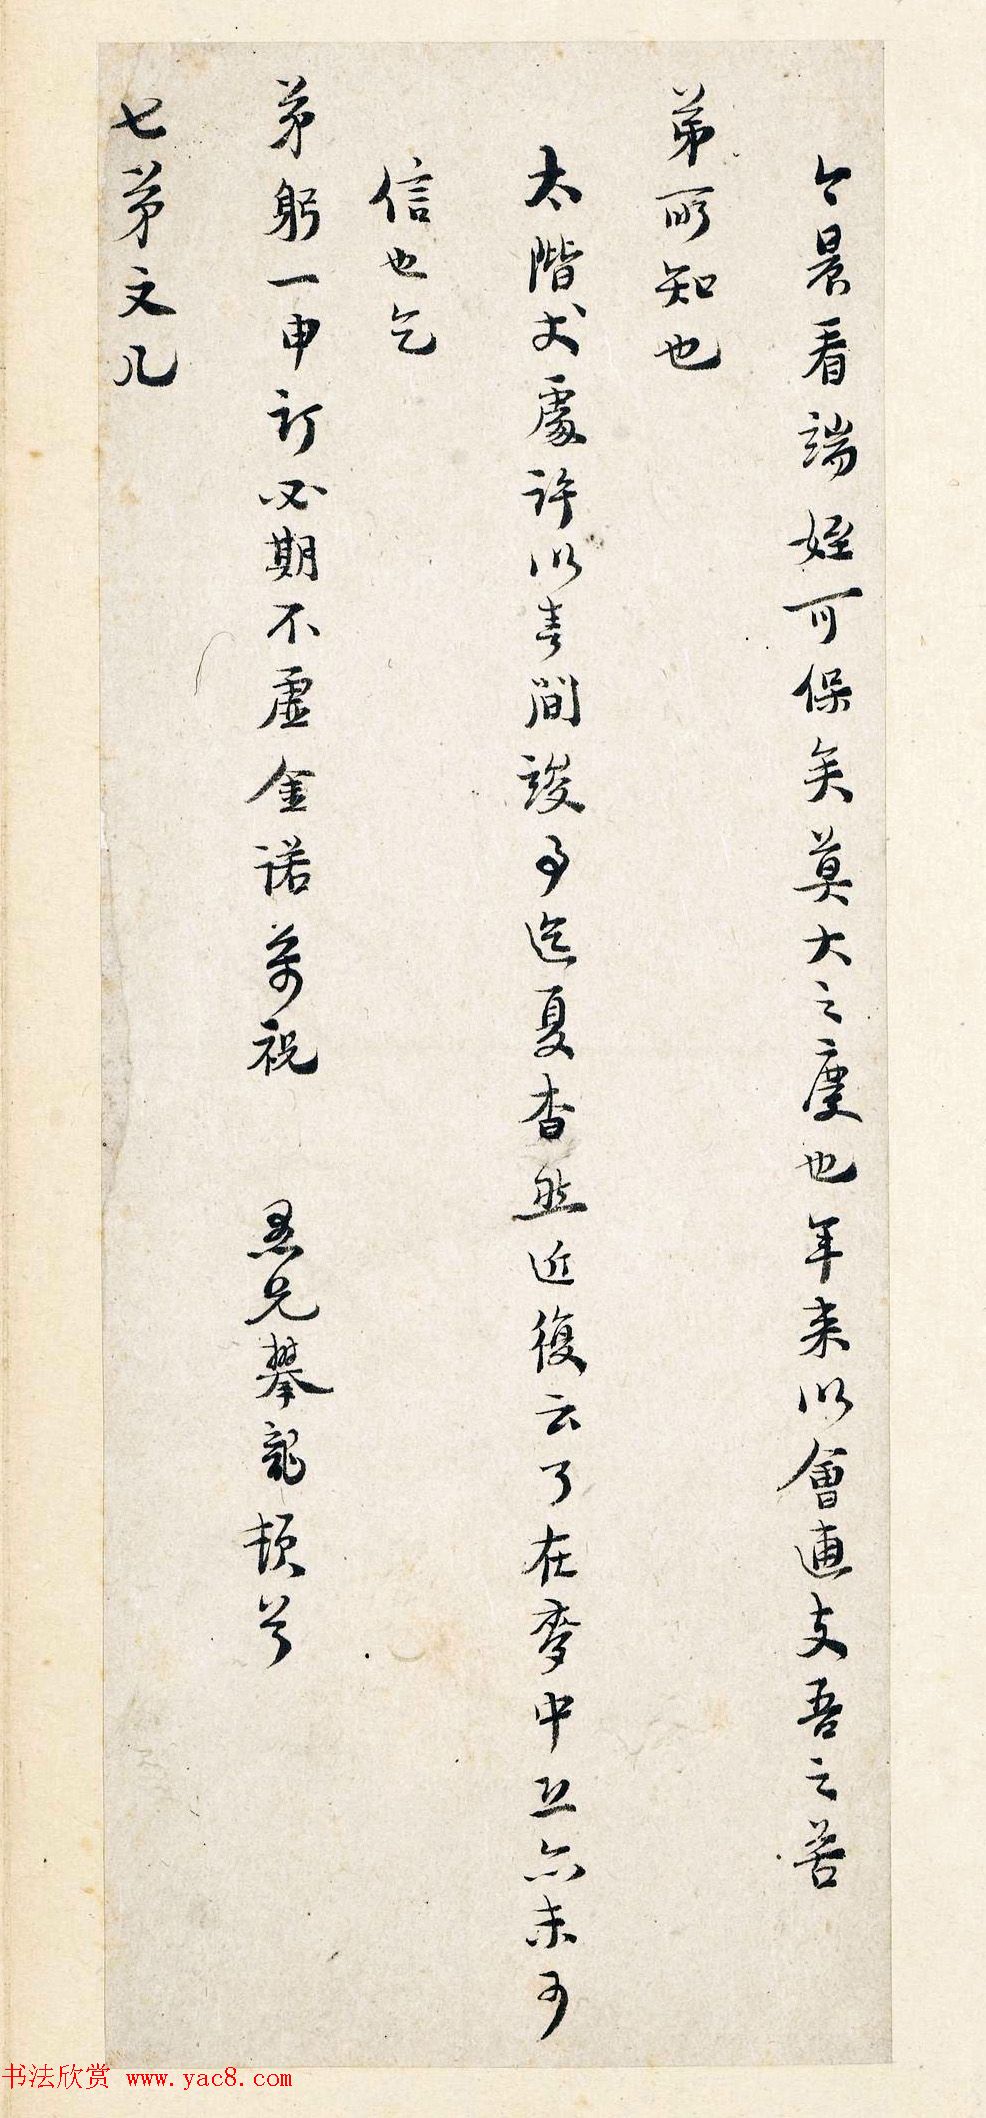 今晨看端姪可保矣莫大之慶也年来以會逋支吾之苦
弟所知也
太階丈處許以春間竣事迄夏杳然近復云了在麥中五六未可
信也乞
弟躬一申訂必期不虚金諾萬祝 愚兄攀龍頓首
七弟文几
书法欣赏 www.yac8.com